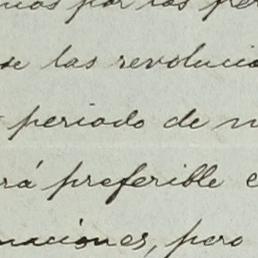 por los
las revolucio
periodo de
rá preferible
naciones, pero